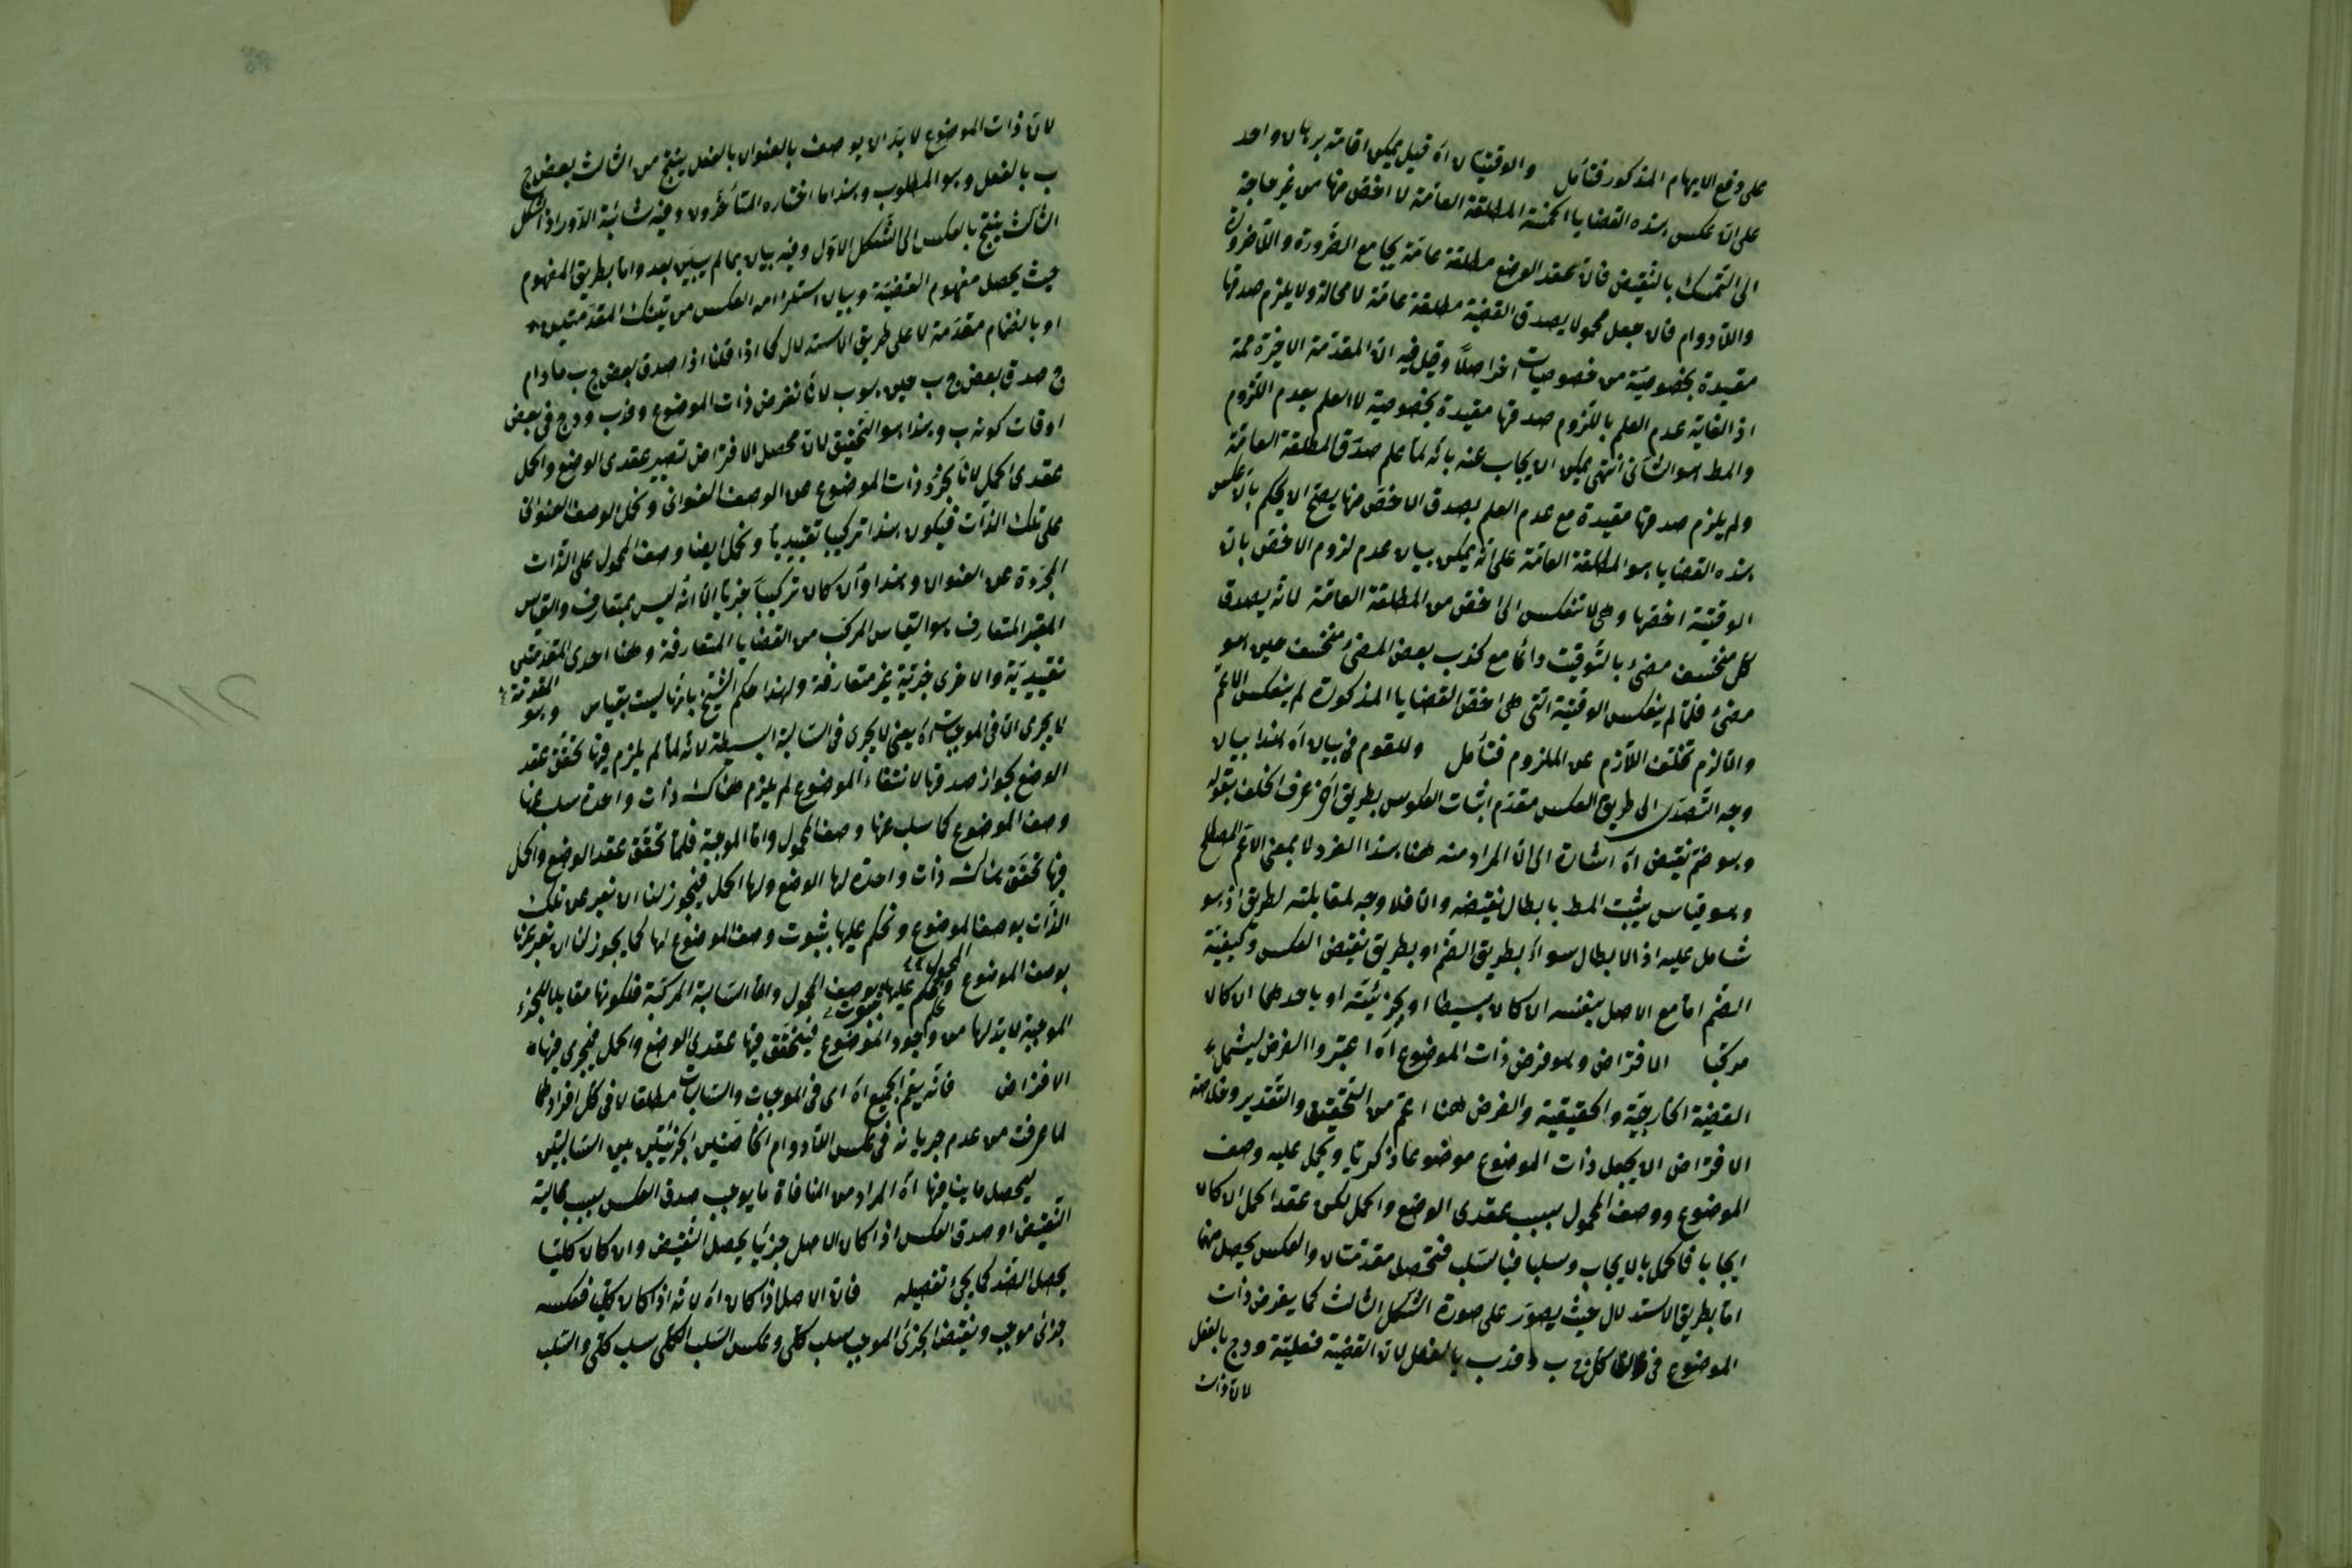 على دفع الايهام المذكور فتأمل والوقتيتان اه قيل يمكن اقامة برهان واحد
على ان عكس هذه القضايا الخمسة المطلقة العامة لا اخص منها من غير حاجة
الى التمسك بالنقيض فان عقد الوضع مطلقة عامة يجامع الضرورة واللاضرورة
واللادوام فان جعل محمولا يصدق القضية مطلقة عامة لا محالة ولا يلزم صدقها
مقيدة بخصوصية من خصوصيات اخر اصلا وقيل فيه ان المقدمة الاخيرة ممة
اذ الغاية عدم العلم باللزوم صدقها مقيدة بخصوصية لا العلم بعدم اللزوم
والمط هو الثاني انتهى يمكن ان يجاب عنه بانه لما علم صدق المطلقة العامة
ولم يلزم صدقها مقيدة مع عدم العلم بصدق الاخص منها يصح ان يحكم بان عكس
هذه القضايا هو المطلقة العامة على انه يمكن بيان عدم لزوم الاخص بان
الوقتية اخصها وهي لا تنعكس الى اخص من المطلقة العامة لانه يصدق
كل منخسف مضئ بالتوقيت دائما مع كذب بعض المضئ منخسف حين هو
مضئ فلما لم ينعكس الوقتية التي هي اخص القضايا المذكورة لم ينعكس الاعم
والا لزم تخلف اللازم عن الملزوم فتأمل وللقوم في بيان اه هذا بيان
وجه التصدى الى طريق العكس مقدم اثبات العكوس بطريق آخر عرف الخلف بقوله
وهو ضم نقيض اه اشارة الى ان المراد منه هنا هذا الفرد لا بمعنى الاعم المصطلح
وهو قياس يثبت المط بابطال نقيضه والا فلا وجه لمقابلته لطريق اذ هو
شامل عليه اذ الابطال سواء بطريق الضم او بطريق نقيض العكس وكيفية
الضم اما مع الاصل بنفسه ان كان بسيطا او بجزئيته او باحدهما ان كان
مركبا الافتراض وهو فرض ذات الموضوع اه اعتبروا الفرض ليشمل
القضية الخارجية والحقيقية والفرض ههنا اعم من التحقيق والتقدير وخلاصة
الافتراض ان يجعل ذات الموضوع موضوعا ذكريا ويحمل عليه وصف
الموضوع ووصف المحمول بسبب عقدى الوضع والحمل لكن عقد الحمل ان كان
ايجابا فالحمل بالايجاب وسلبا فبالسلب فتحصل مقدمتان والعكس يحصل منهما
اما بطريق الاستدلال حيث يصور على صورة الشكل الثالث كما يفرض ذات
الموضوع في كل ج ب د فد ب بالفعل لان القضية فعلية ود ج بالفعل
لان ذات
لان ذات الموضوع لا بد ان يوصف بالعنوان بالفعل ينتج من الثالث بعض ج
ب بالفعل وهو المطلوب وهذا ما اختاره المتأخرون وفيه شائبة الدور اذ الشكل
الثالث ينتج بالعكس الى الشكل الاول وفيه بيان بما لم يبين بعد واما بطريق المفهوم
حيث يحصل مفهوم القضية وبيان استلزامه العكس من تينك المقدمتين
او بانضمام مقدمة لا على طريق الاستدلال كما اذا قلنا اذا صدق بعض ج ب ما دام
ج صدق بعض ج ب حين هو ب لانا نفرض ذات الموضوع د فد ب ود ج في بعض
اوقات كونه ب وهذا هو التحقيق لان محصل الافتراض تصيير عقدى الوضع والحمل
عقدى الحمل لانا نجرد ذات الموضوع عن الوصف العنوانى ونحمل الوصف العنوانى
على تلك الذات فيكون هذا تركيبا تقييديا ونحمل ايضا وصف المحمول على الذات
المجردة عن العنوان وهذا وان كان تركيبا خبريا الا انه ليس بمتعارف والقياس
المعتبر المتعارف هو القياس المركب من القضايا المتعارفة وههنا احدى المقدمتين
تقييدية والاخرى خبرية غير متعارفة ولهذا حكم الشيخ بانها ليست بقياس وهو
لا يجرى الا في الموجبات اه يعنى لا يجرى في السالبة البسيطة لانه لما لم يلزم فيها تحقق عقد
الوضع بجواز صدقها لانتفاء الموضوع لم يلزم هناك ذات واحدة سلب عنها
وصف الموضوع كما سلب عنها وصف المحمول واما الموجبة فلما تحقق عقد الوضع والحمل
فيها تحقق هناك ذات واحدة لها الوضع ولها الحمل فيجوز لنا ان نعبر عن تلك
الذات بوصف الموضوع ونحكم عليها بثبوت وصف الموضوع لها كما يجوز لنا ان نعبر عنها
بوصف الموضوع ونحكم عليها بوصف المحمول واما السالبة المركبة فلكونها مقابلا للجزء
الموجبة لا بد لها من وجود الموضوع فيتحقق فيها عقدى الوضع والحمل فيجرى فيها
الافتراض فانه يعم الجميع اه اى في الموجبات والسالبات مطلقا لا في كل افرادهما
لما عرفت من عدم جريانه في عكس اللادوام الخاصتين الجزئيتين بين السالبتين
ليحصل ما ينافيها اه المراد من المنافاة ما يوجب صدق العكس بسبب محالية
النقيض او صدق العكس اذا كان الاصل جزئيا يحصل النقيض وان كان كليا
يحصل الضد كما يجئ تفصيله فان الاصل اذا كان اه لانه اذا كان كليا فعكسه
جزئى موجب ونقيض الجزئى الموجب سلب كلى وعكس السلب الكلى سلب كلى والسلب